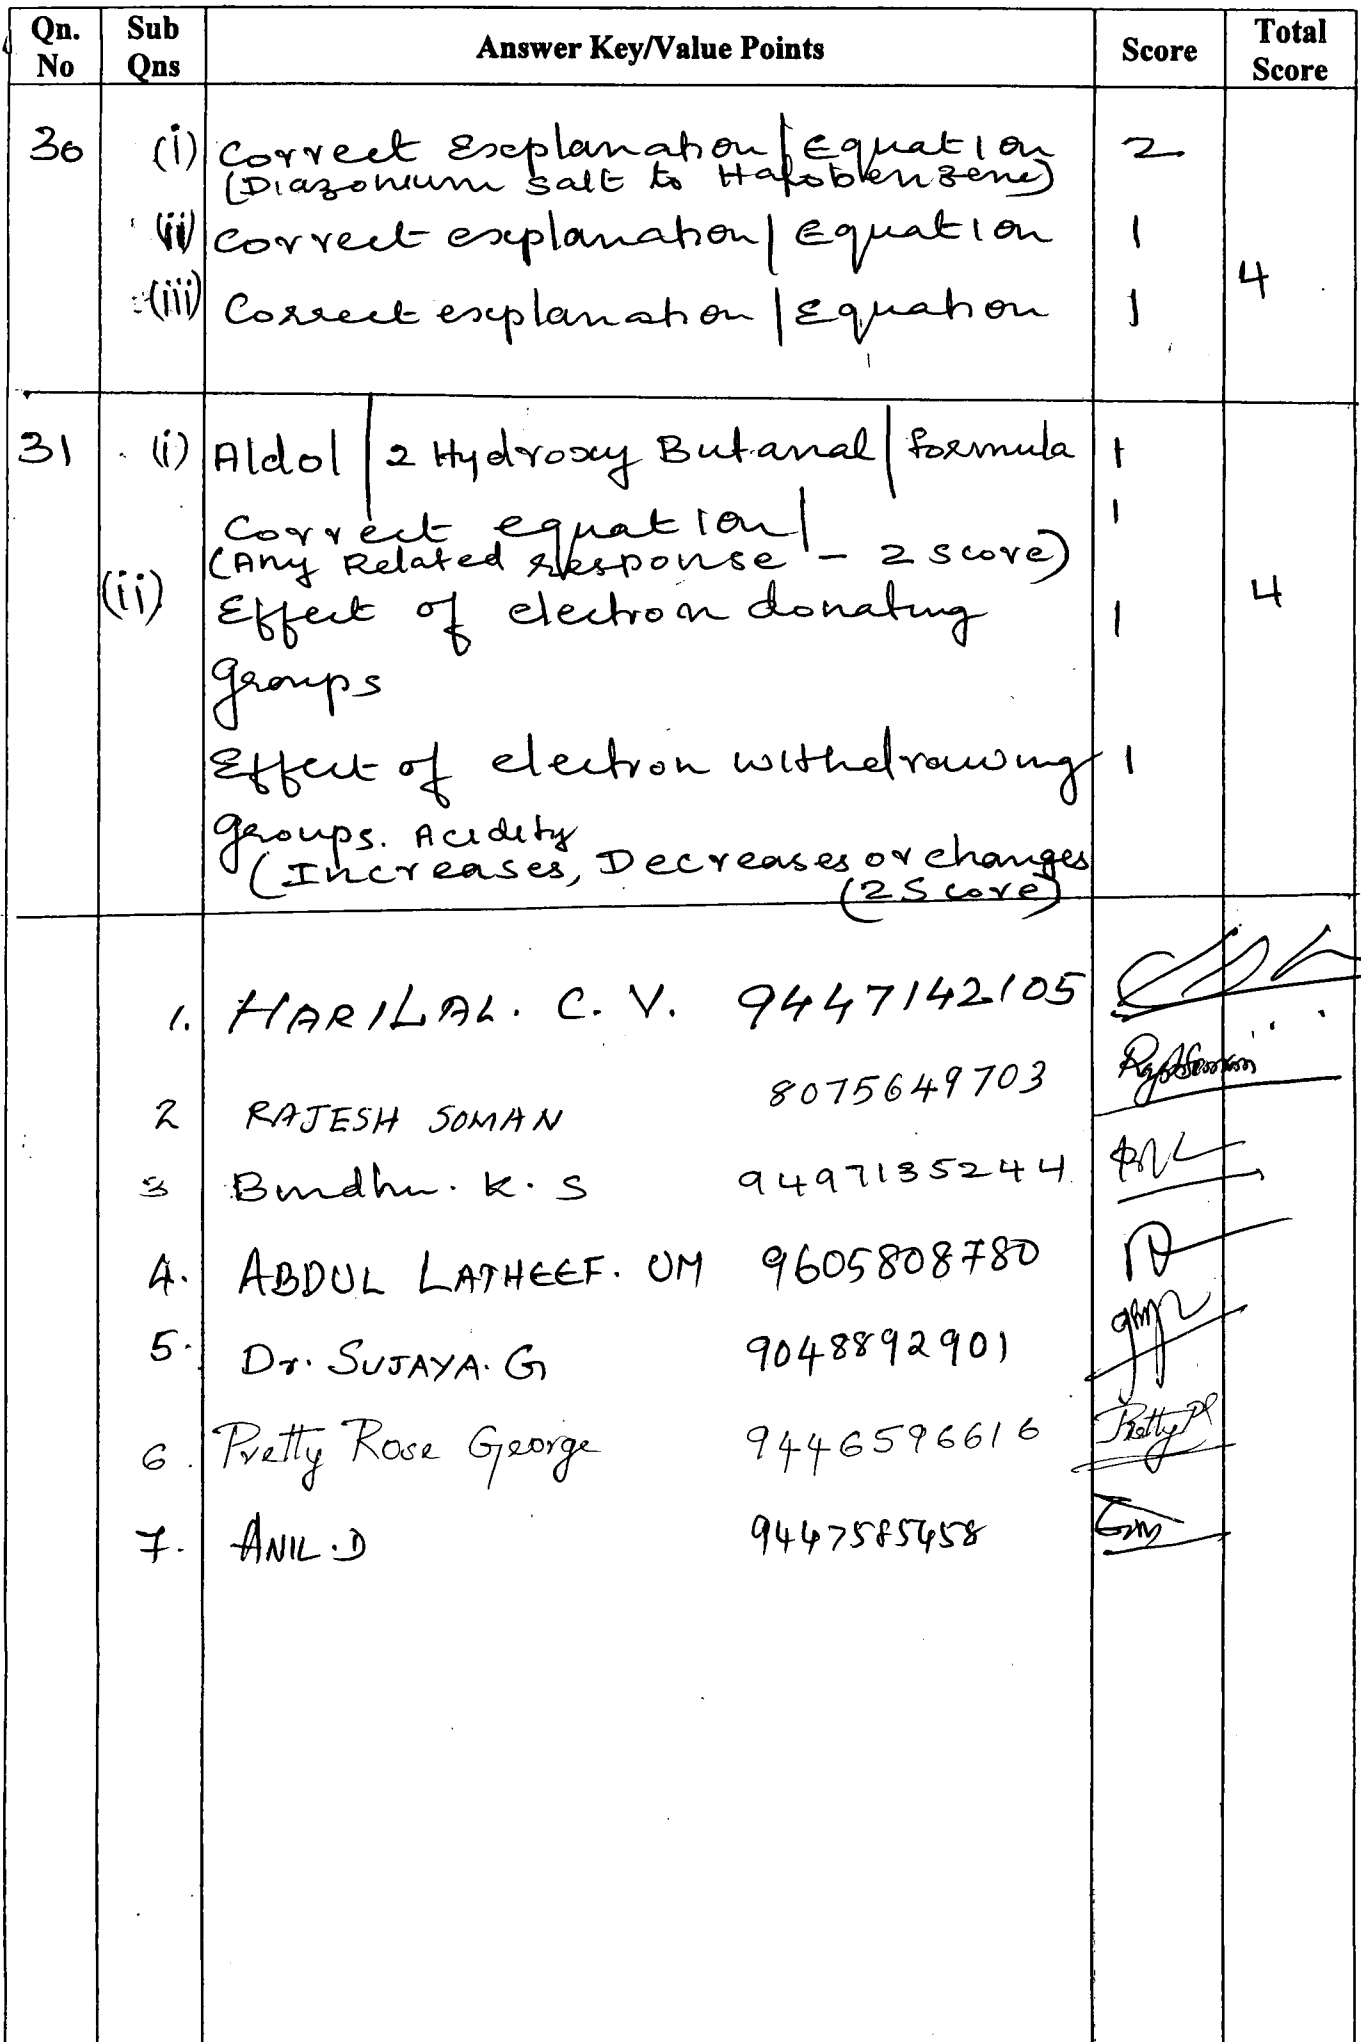 Qn. No Sub Qns Answer Key/Value Points Score Total Score
30 (i) Correct Explanation | Equation 2
(Diazonium salt to Halobenzene)
(ii) Correct explanation | Equation 1
4
(iii) Correct explanation | Equation 1
31 (i) Aldol | 2 Hydroxy Butanal | formula 1
Correct equation | 1
(Any Related response - 2 score)
(ii) Effect of electron donating 1 4
groups
Effect of electron withdrawing 1
groups. Acidity
(Increases, Decreases or changes
(2 Score)
1. HARILAL. C. V. 9447142105
2 RAJESH SOMAN 8075649703
3 Bindhu. K. S 9497135244
4. ABDUL LATHEEF. UM 9605808780
5. Dr. SUJAYA. G 9048892901
6. Pretty Rose George 9446596616
7. ANIL. D 9447585458